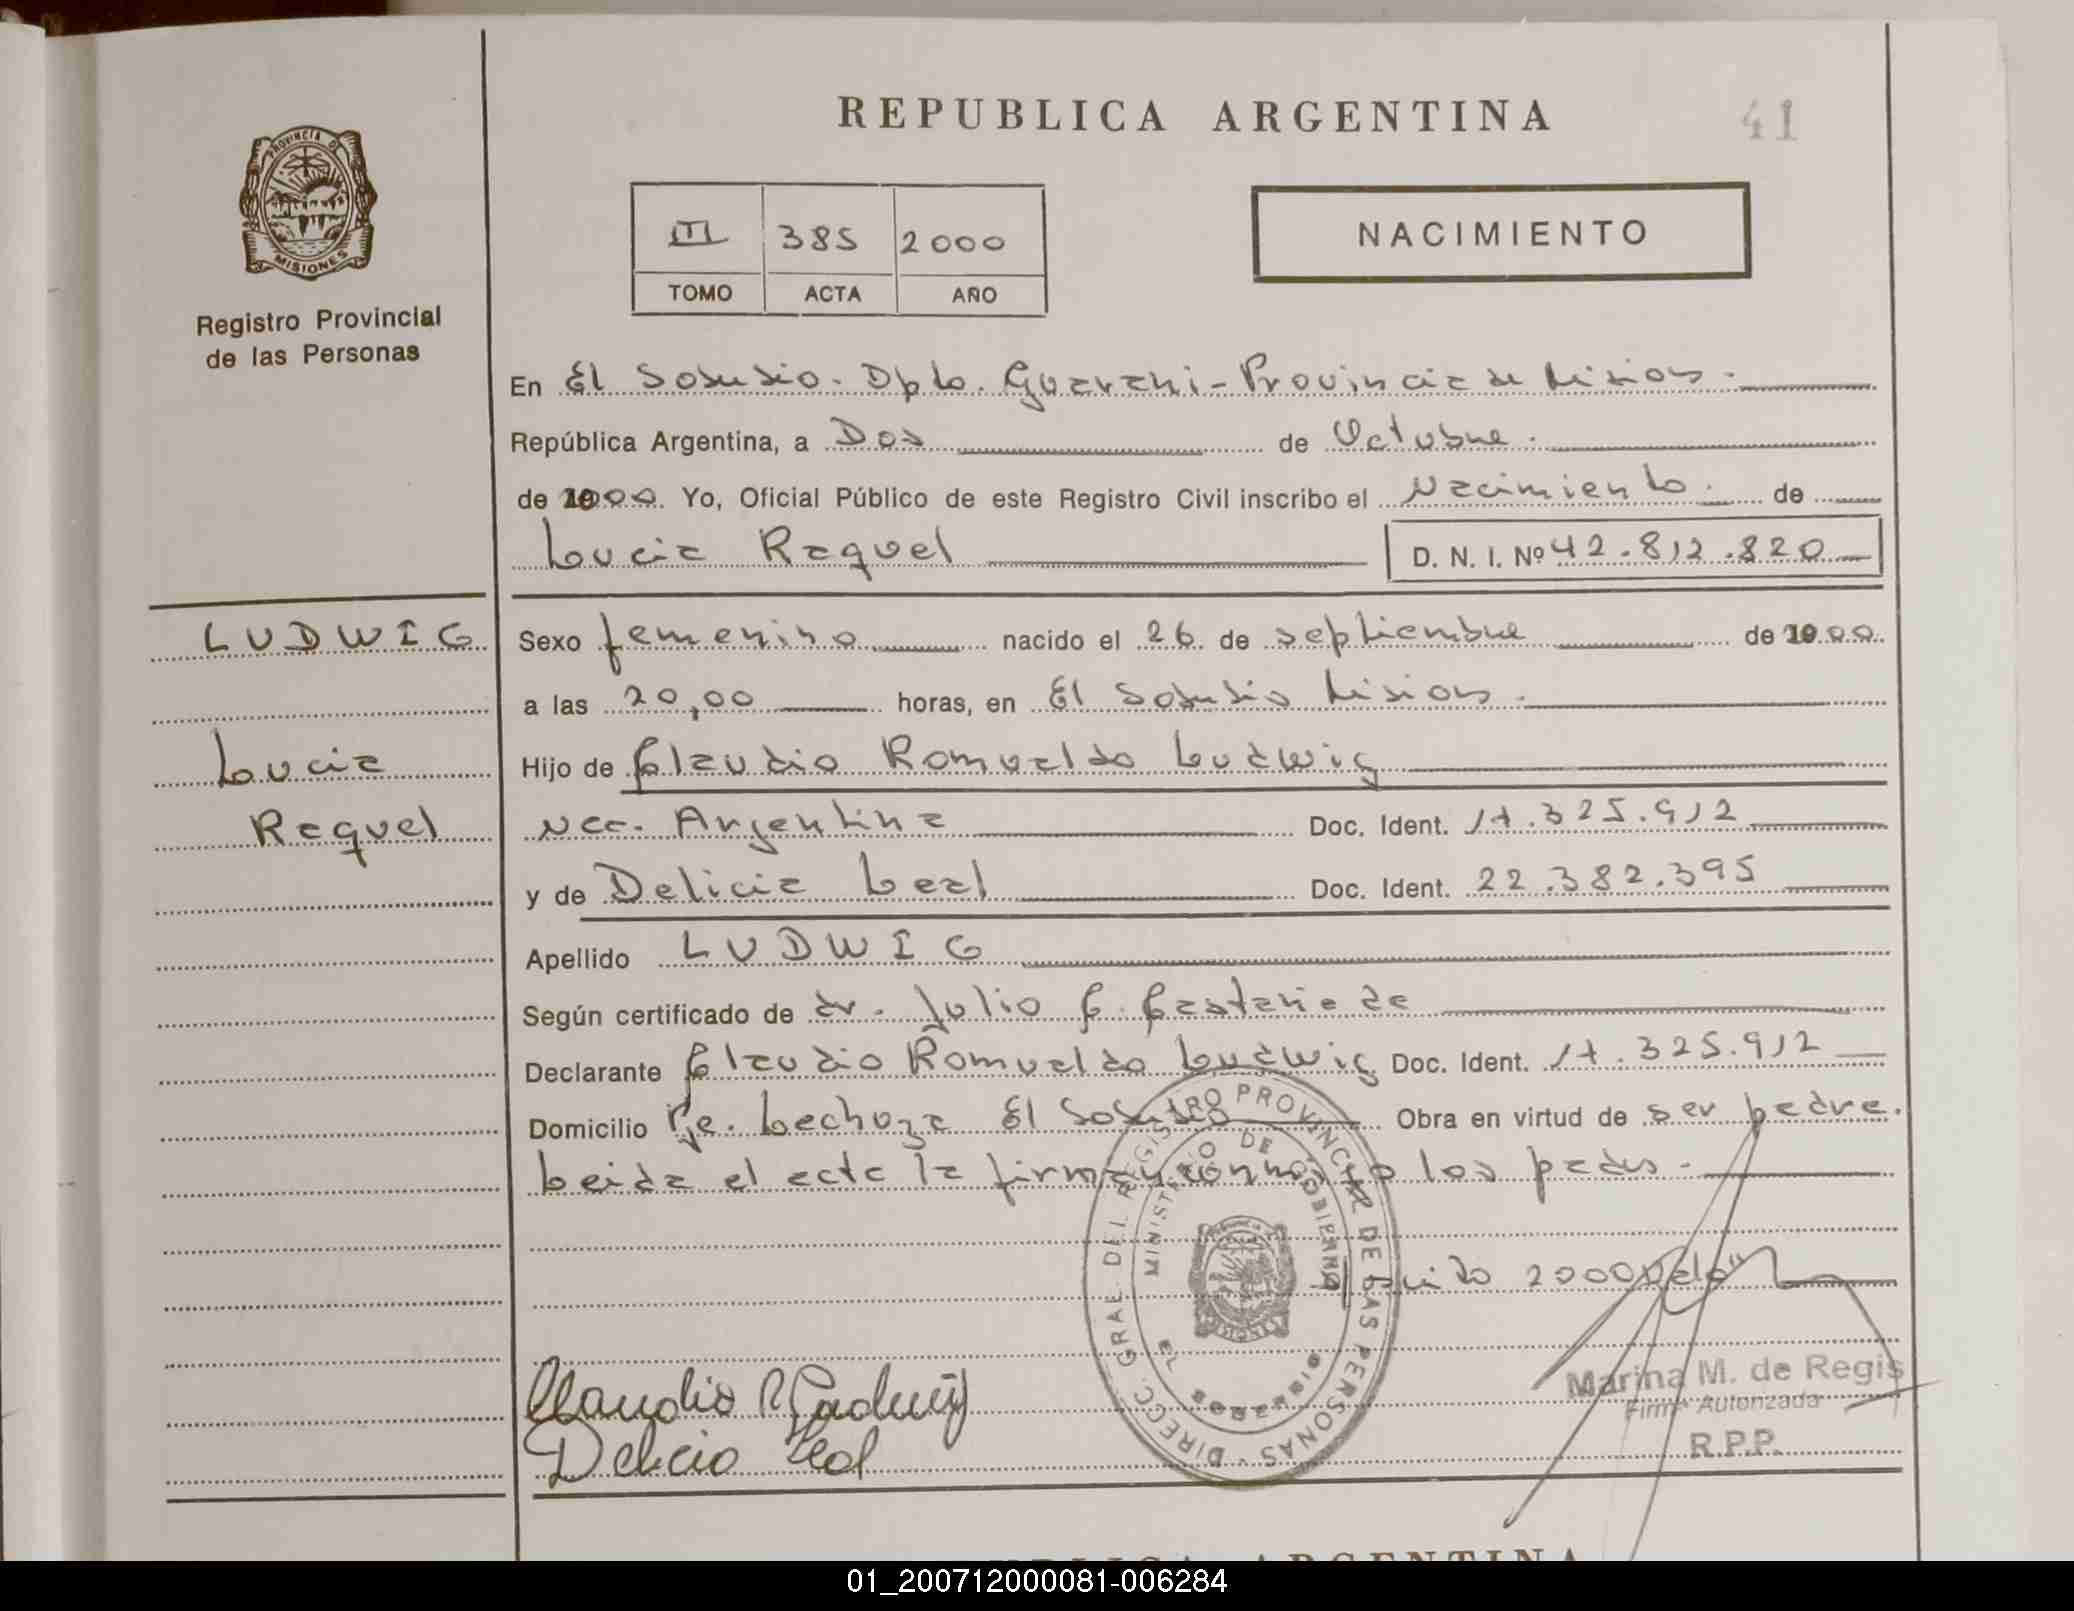 REPUBLICA ARGENTINA
41
PROVINCIA DE
MISIONES
Registro Provincial
de las Personas
III 385 2000
TOMO ACTA AÑO
NACIMIENTO
En El Soberbio. Dpto. Guarani - Provincia de Misiones.
República Argentina, a Dos de Octubre.
de 2000. Yo, Oficial Público de este Registro Civil inscribo el Nacimiento. de
Lucia Raquel D. N. I. Nº 42.812.820
LUDWIG
Lucia
Raquel
Sexo femenino nacido el 26 de septiembre de 2000.
a las 20,00 horas, en El Soberbio Misiones.
Hijo de Claudio Romualdo Ludwig
Nac. Argentina Doc. Ident. 17.325.912
y de Delicia Leal Doc. Ident. 22.382.395
Apellido LUDWIG
Según certificado de dr. Julio C.
Declarante Claudio Romualdo Ludwig Doc. Ident. 17.325.912
Domicilio Pje. Lechuza El Soberbio Obra en virtud de ser padre.
Leida el acta la firman conmigo los padres.
2000 vale"
Claudio R Ludwig
Delicia Leal
DIRECC. GRAL. DEL REGISTRO PROVINCIAL DE LAS PERSONAS
MINISTERIO DE GOBIERNO
EL SOBERBIO
Marina M. de Regis
Firma Autorizada
R.P.P.
REPUBLICA ARGENTINA
01_200712000081-006284